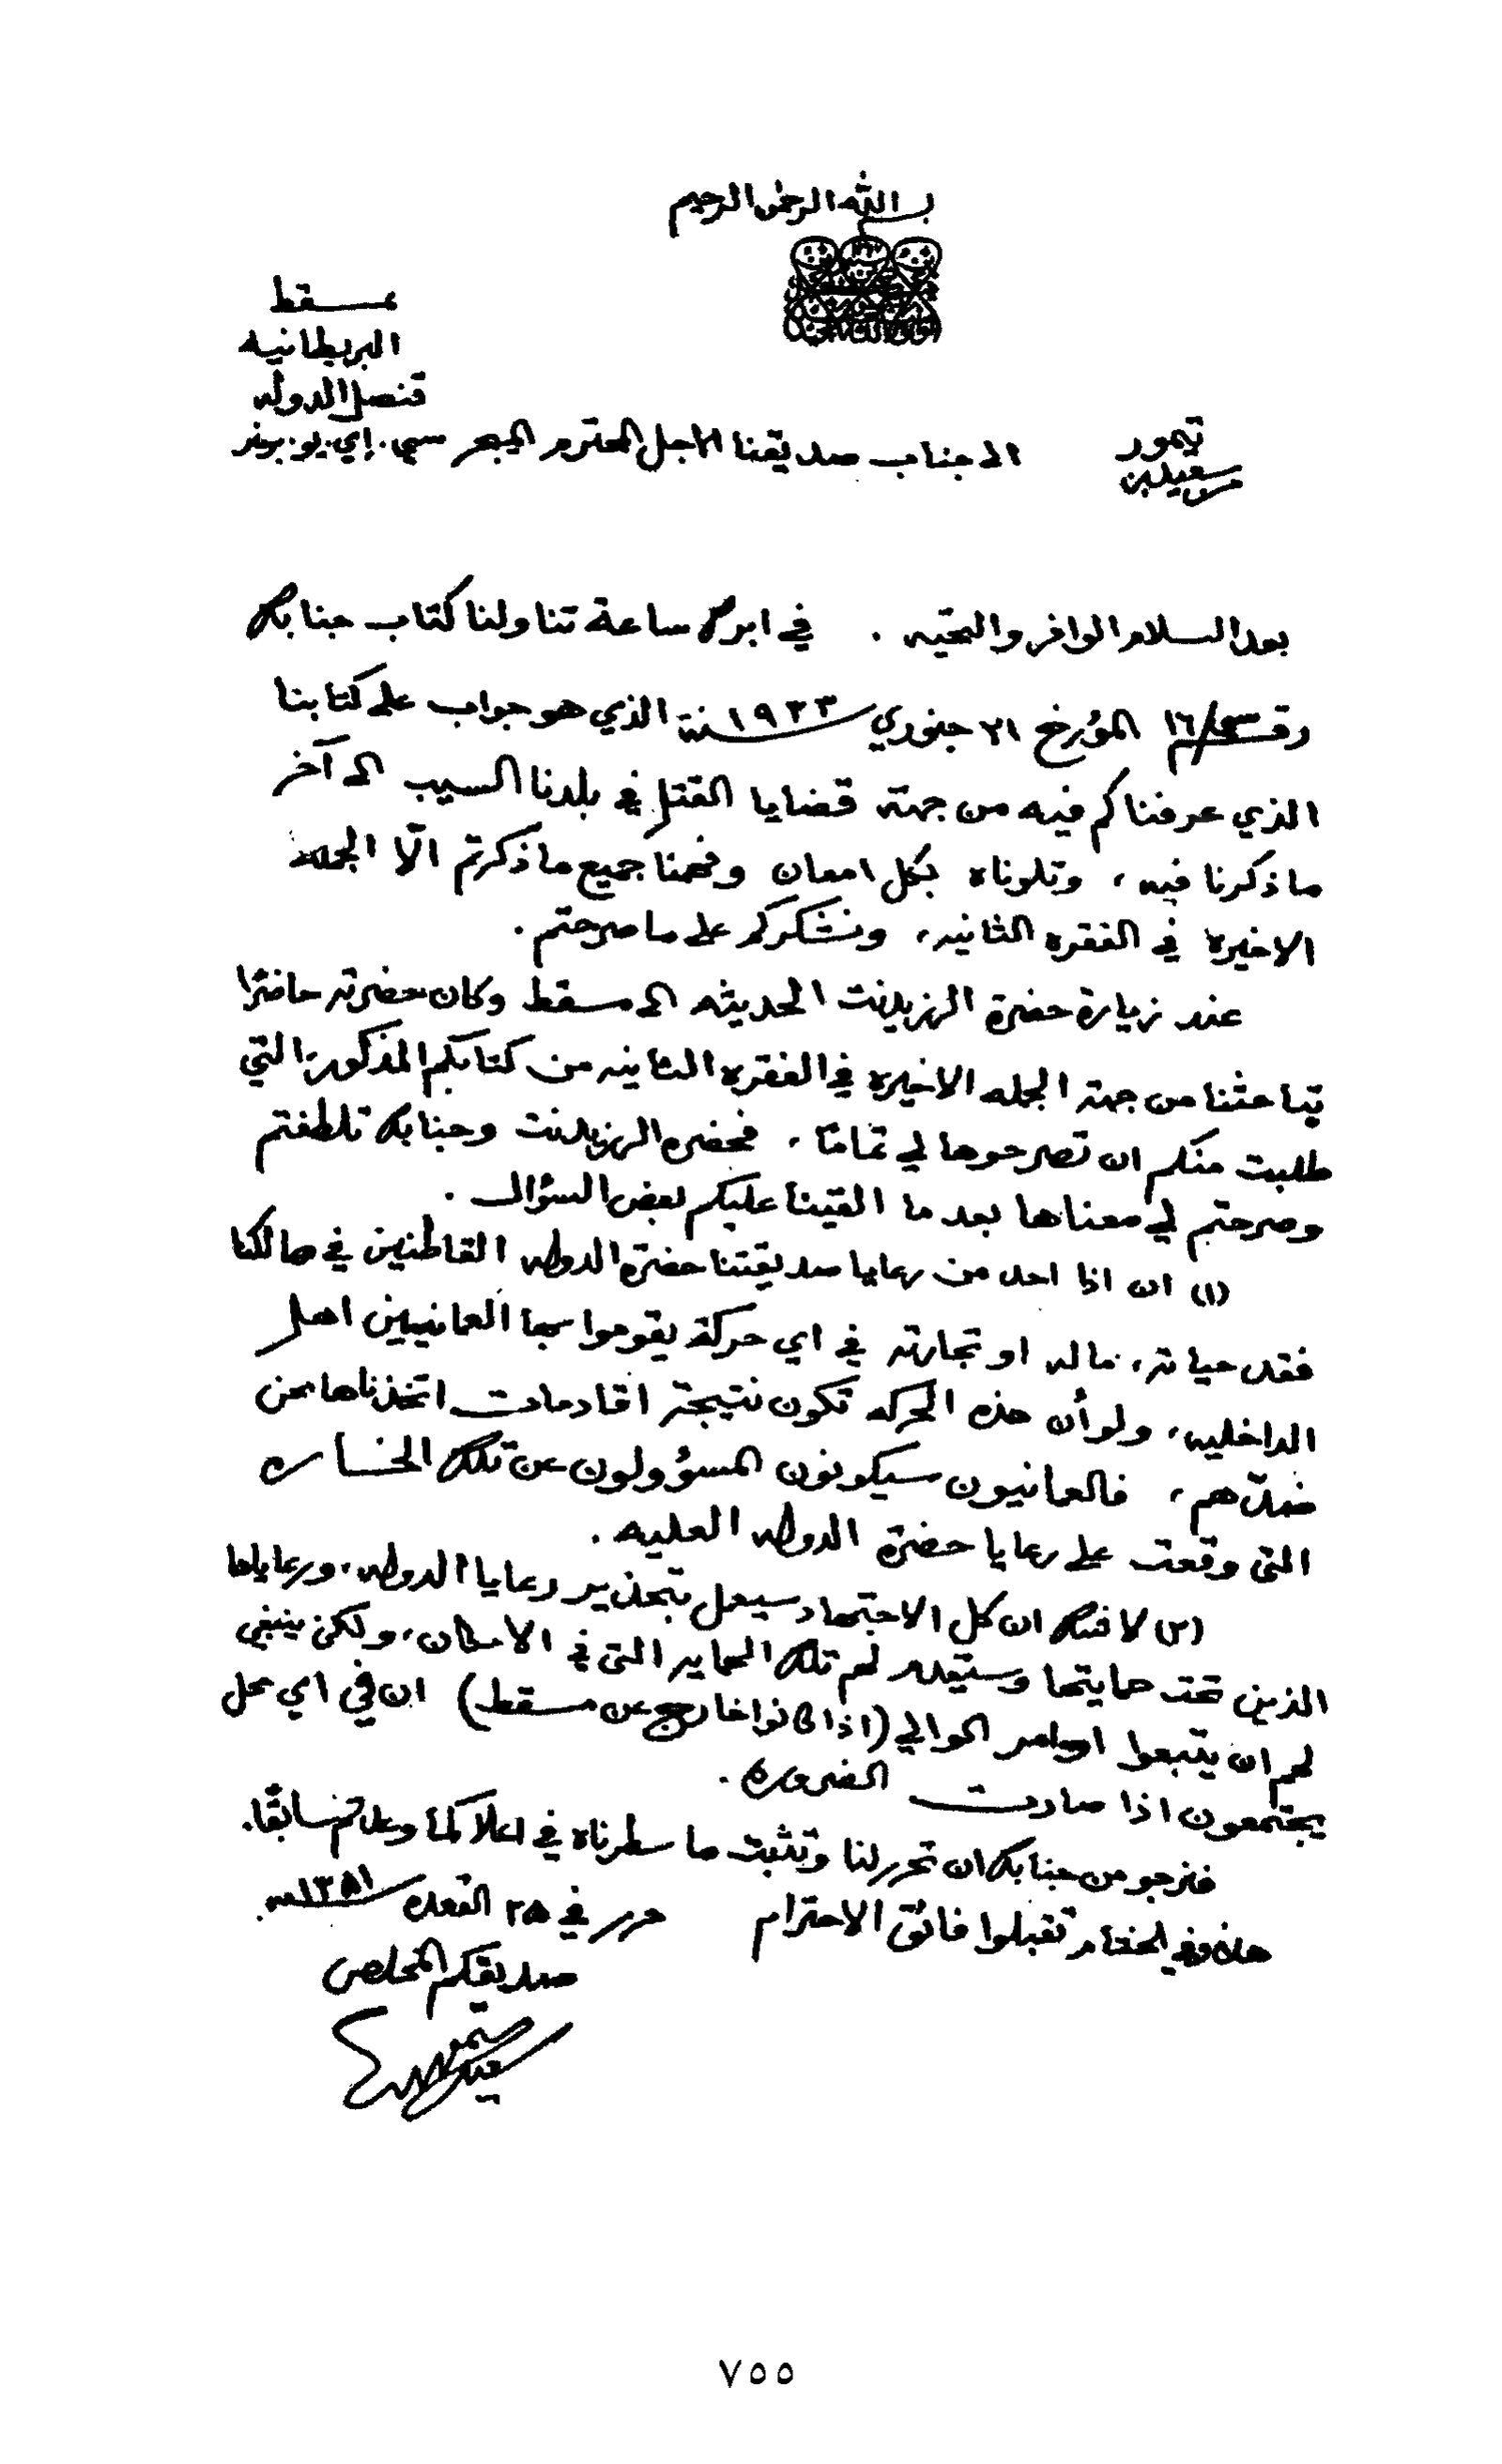 بسم الله الرحمن الرحيم
من سعيد بن تيمور
الى جناب صديقنا الاجل المحترم الميجر سي. إي. يو. بريمنر
قنصل الدوله
البريطانيه
بمسقط
بعد السلام الوافر والتحيه . في ابرك ساعة تناولنا كتاب جنابك
رقم سي/١٦ المؤرخ ٢١ جنوري سنة ١٩٣٣ الذي هو جواب على كتابنا
الذي عرفناكم فيه من جهة قضايا القتل في بلدنا السيب الى آخر
ما ذكرنا فيه، وتلوناه بكل امعان وفهمنا جميع ما ذكرتم الّا الجمله
الاخيره في الفقره الثانيه، ونشكركم على ما صرحتم .
عند زيارة حضرة الرزيدنت الحديثه الى مسقط وكان حضرته حاضرًا
تباحثنا من جهة الجمله الاخيره في الفقره الثانيه من كتابكم المذكور، التي
طلبت منكم ان تصرحوها لي تمامًا، فحضره الرزيدنت وجنابك تلطفتم
وصرحتم لي معناها بعد ما القينا عليكم بعض السؤال .
(١) ان اذا احد من رعايا صديقتنا حضرة الدوله القاطنين في ممالكنا
فقد حياته، ماله او تجارته في اي حركة يقوموا بها العمانيين اهل
الداخليه، ولو أن هذه الحركه تكون نتيجة اقدامات اتخذناها نحن
ضدّهم، فالعمانيون سيكونون المسؤولون عن تلك الخساره
التي وقعت على رعايا حضرة الدوله العليه .
(٢) لا شك ان كل الاجتهاد سيعمل بتحذير رعايا الدوله، ورعاياها
الذين تحت حمايتها وستعدد لهم تلك الحمايه التي في الامكان، ولكن ينبغي
لهم ان يتبعوا اوامر الوالي (اذا كانوا خارج عن مسقط) ان في اي محل
يجتمعون اذا صارت الضروره .
فنرجو من جنابك ان تحرر لنا وتثبت ما سطرناه في اعلا كما وعدتم سابقًا.
هذا وفي الختام تقبلوا فائق الاحترام حرر في ٢٥ القعده سنة ١٣٥١
صديقكم المخلص
سعيد بن تيمور
٧٥٥